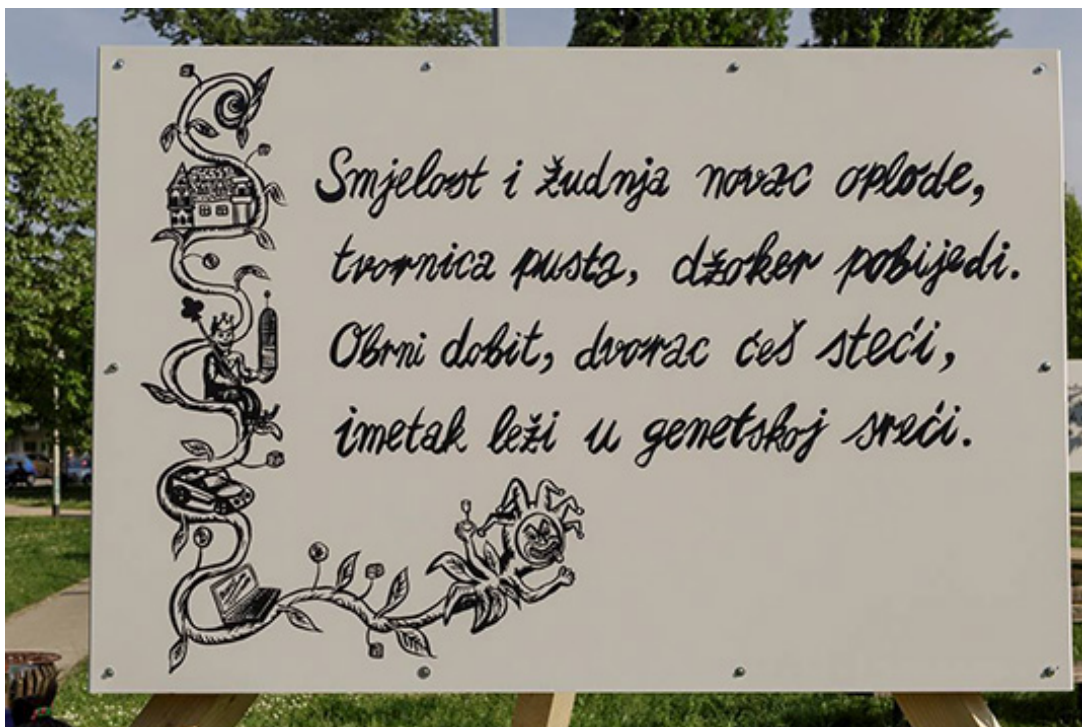 Smjelost i žudnja novac oplode,
tvornica pusta, džoker pobijedi.
Obrni dobit, dvorac ćeš steći,
imetak leži u genetskoj sreći.